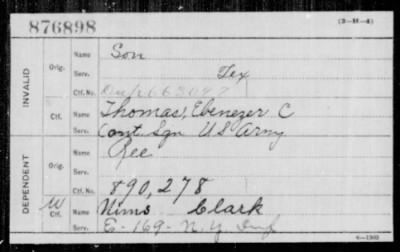 876898
(3-H-4)
INVALID
Orig.
Name Son
Serv. Tex
Ctf. No.
Ctf.
Name Thomas, Ebenezer C
Serv. Cont. Sgn US Army
DEPENDENT
Orig.
Name Ree
Serv.
Ctf. No. 890,278
W
Ctf.
Name Nims Clark
Serv. E-169-N.Y. Inf
6-1902